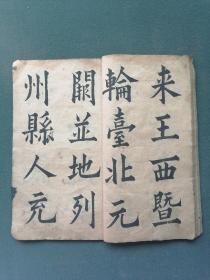 来王西暨
輪臺北元
闕並地列
州縣人充